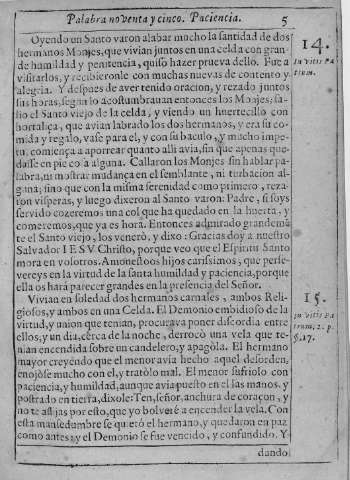 Palabra noventa y cinco. Paciencia. 5
Oyendo un Santo varon alabar mucho la santidad de dos
hermanos Monjes, que vivian juntos en una celda con gran-
de humildad y penitencia, quiso hazer prueva dello. Fue a
visitarlos, y recibieronle con muchas nuevas de contento y
alegria. Y despues de aver tenido oracion, y rezado juntos
sus horas, segun lo acostumbravan entonces los Monjes; sa-
lio el Santo viejo de la celda, y viendo un huertecillo con
hortaliça, que avian labrado los dos hermanos, y era su co-
mida y regalo, vase para el, y con su baculo, y mucho impe-
tu, comença a aporrear quanto alli avia, sin que apenas que-
dasse en pie cola alguna. Callaron los Monjes sin hablar pa-
labra, ni mostrar mudança en el semblante, ni turbacion al-
guna; sino que con la misma serenidad como primero, reza-
ron visperas, y luego dixeron al Santo varon: Padre, si soys
servido cozeremos una col que ha quedado en la huerta, y
comeremos, que ya es hora. Entonces admirado grandeme
te el Santo viejo, los venerò, y dixo: Gracias doy a nuestro
Salvador IESV Christo, porque veo que el Espiritu Santo
mora en vosotros. Amonestoos hijos carissimos, que perse-
vereys en la virtud de la santa humildad y paciencia, porque
ella os hará parecer grandes en la presencia del Señor.
Vivian en soledad dos hermanos carnales, ambos Reli-
giosos, y ambos en una Celda. El Demonio embidioso de la
virtud, y union que tenian, procurava poner discordia entre
ellos, y un dia, cerca de la noche, derrocò una vela que te-
nian encendida sobre un candelero, y apagòla. El hermano
mayor creyendo que el menor avia hecho aquel desorden,
enojòse mucho con el, y tratòlo mal. El menor sufriolo con
paciencia, y humildad, aunque avia puesto en el las manos, y
postrado en tierra, dixole: Ten, señor, anchura de coraçon, y
no te aflijas por esto, que yo bolverè a encender la vela. Con
esta mansedumbre se quietò el hermano, y quedaron en paz
como antes; y el Demonio se fue vencido, y confundido. Y
dando
14.
In Vitis Pa-
trum.
15.
In Vitis Pa
trum, 2. p.
§. 17.